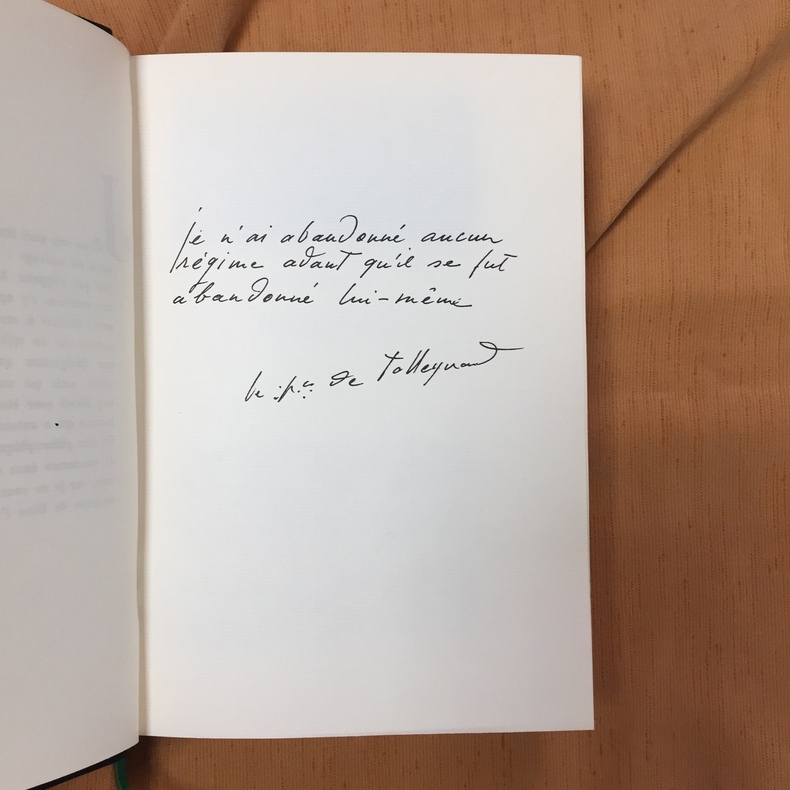 je n'ai abandonné aucun
régime avant qu'il se fut
abandonné lui-même
le p.ce de Talleyrand